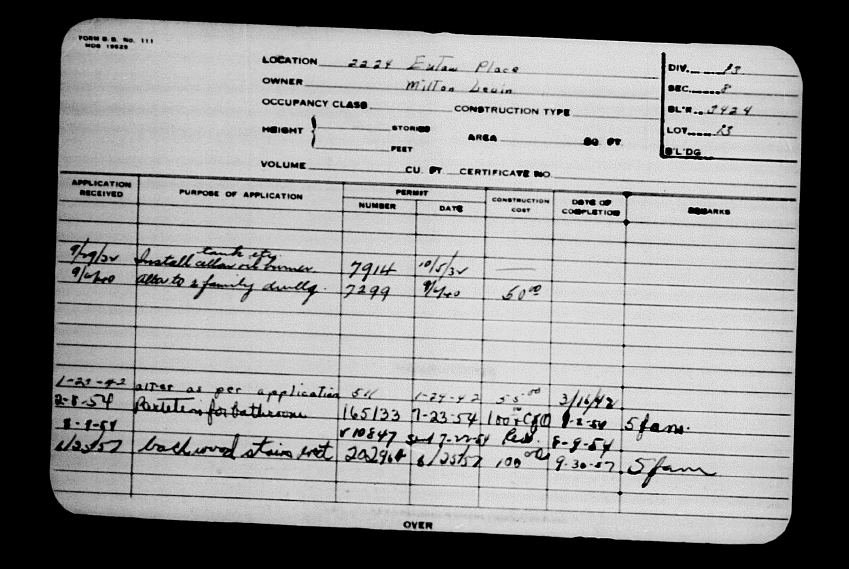 FORM B.B. No. 111
MOB 19629
LOCATION 2224 Eutaw Place
OWNER Milton Levin
OCCUPANCY CLASS CONSTRUCTION TYPE
HEIGHT { STORIES
FEET
AREA SQ. FT.
VOLUME CU. FT. CERTIFICATE NO.
DIV. 13
SEC. 8
BL'K. 3424
LOT 13
B'L'DG
APPLICATION RECEIVED PURPOSE OF APPLICATION PERMIT NUMBER DATE CONSTRUCTION COST DATE OF COMPLETION REMARKS
tank etc
9/29/32 Install cellar oil burner 7914 10/5/32 —
9/4/40 alter to 2 family dwellg. 7299 9/4/40 50.00
1-23-42 alter as per application 511 1-24-42 55.00 3/16/42
2-8-54 Partition for bathroom 165133 7-23-54 100.00 C&O 9-2-54 5 fam.
8-9-54 V10847 7-22-54 8-9-54
6/25/57 back wood stairs 6/25/57 100.00 9-30-57 5 fam
OVER